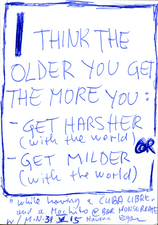 I THINK THE
OLDER YOU GET
THE MORE YOU:
- GET HARSHER
(with the world)
OR
- GET MILDER
(with the world)
* while having a CUBA LIBRE
and a Mochito @ BAR MONSERRATE
w/ M.N. 31 V 15 Havana